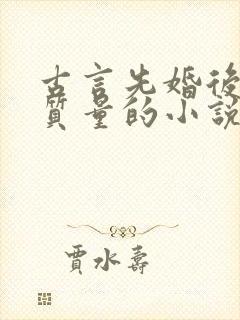 古言先婚後
質量的小說
賈水壽